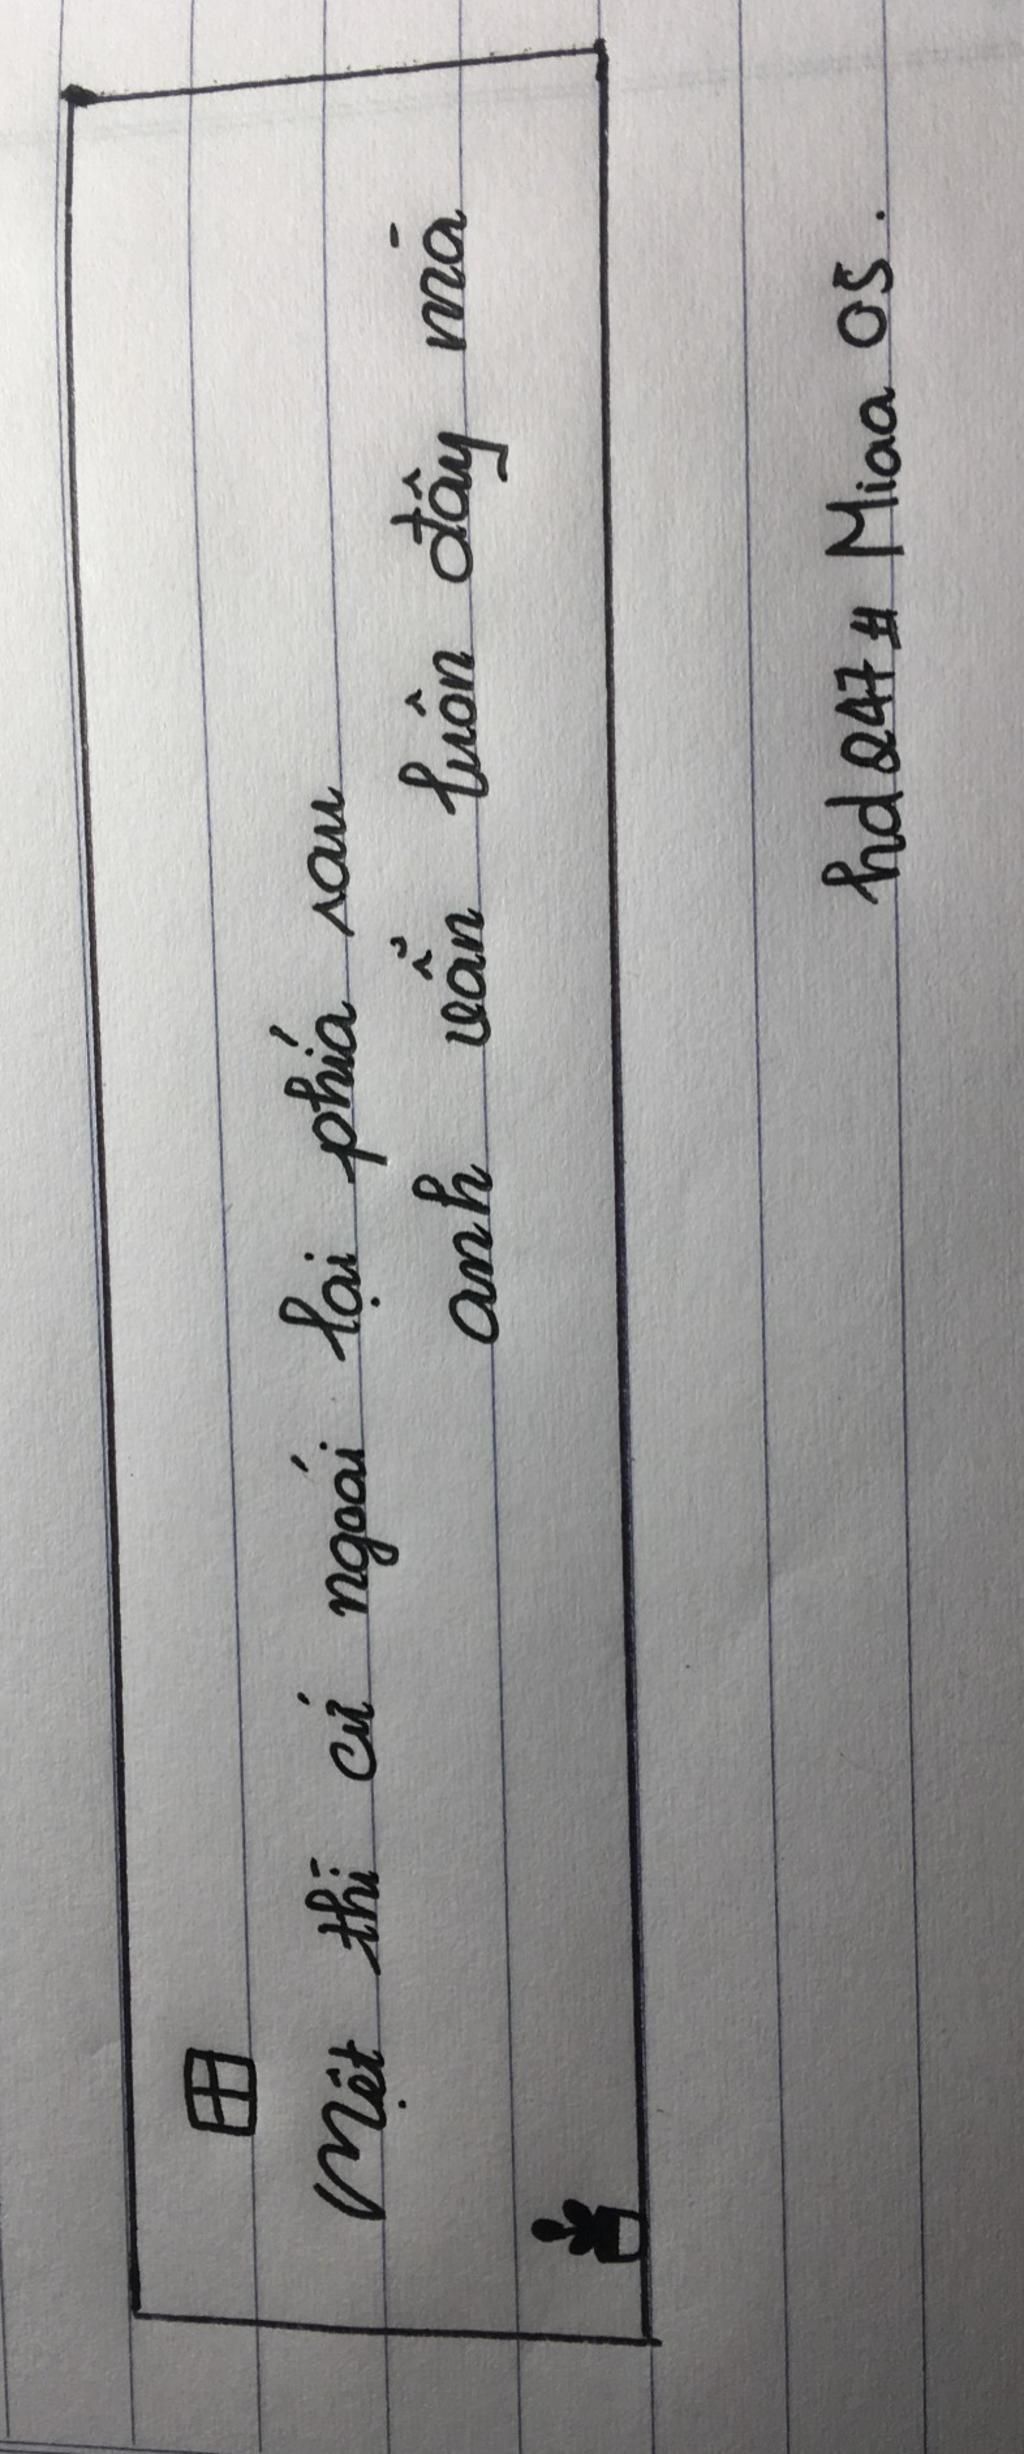 Mệt thì cứ ngoái lại phía sau
anh vẫn luôn đây mà
hd247# Miaa 05.